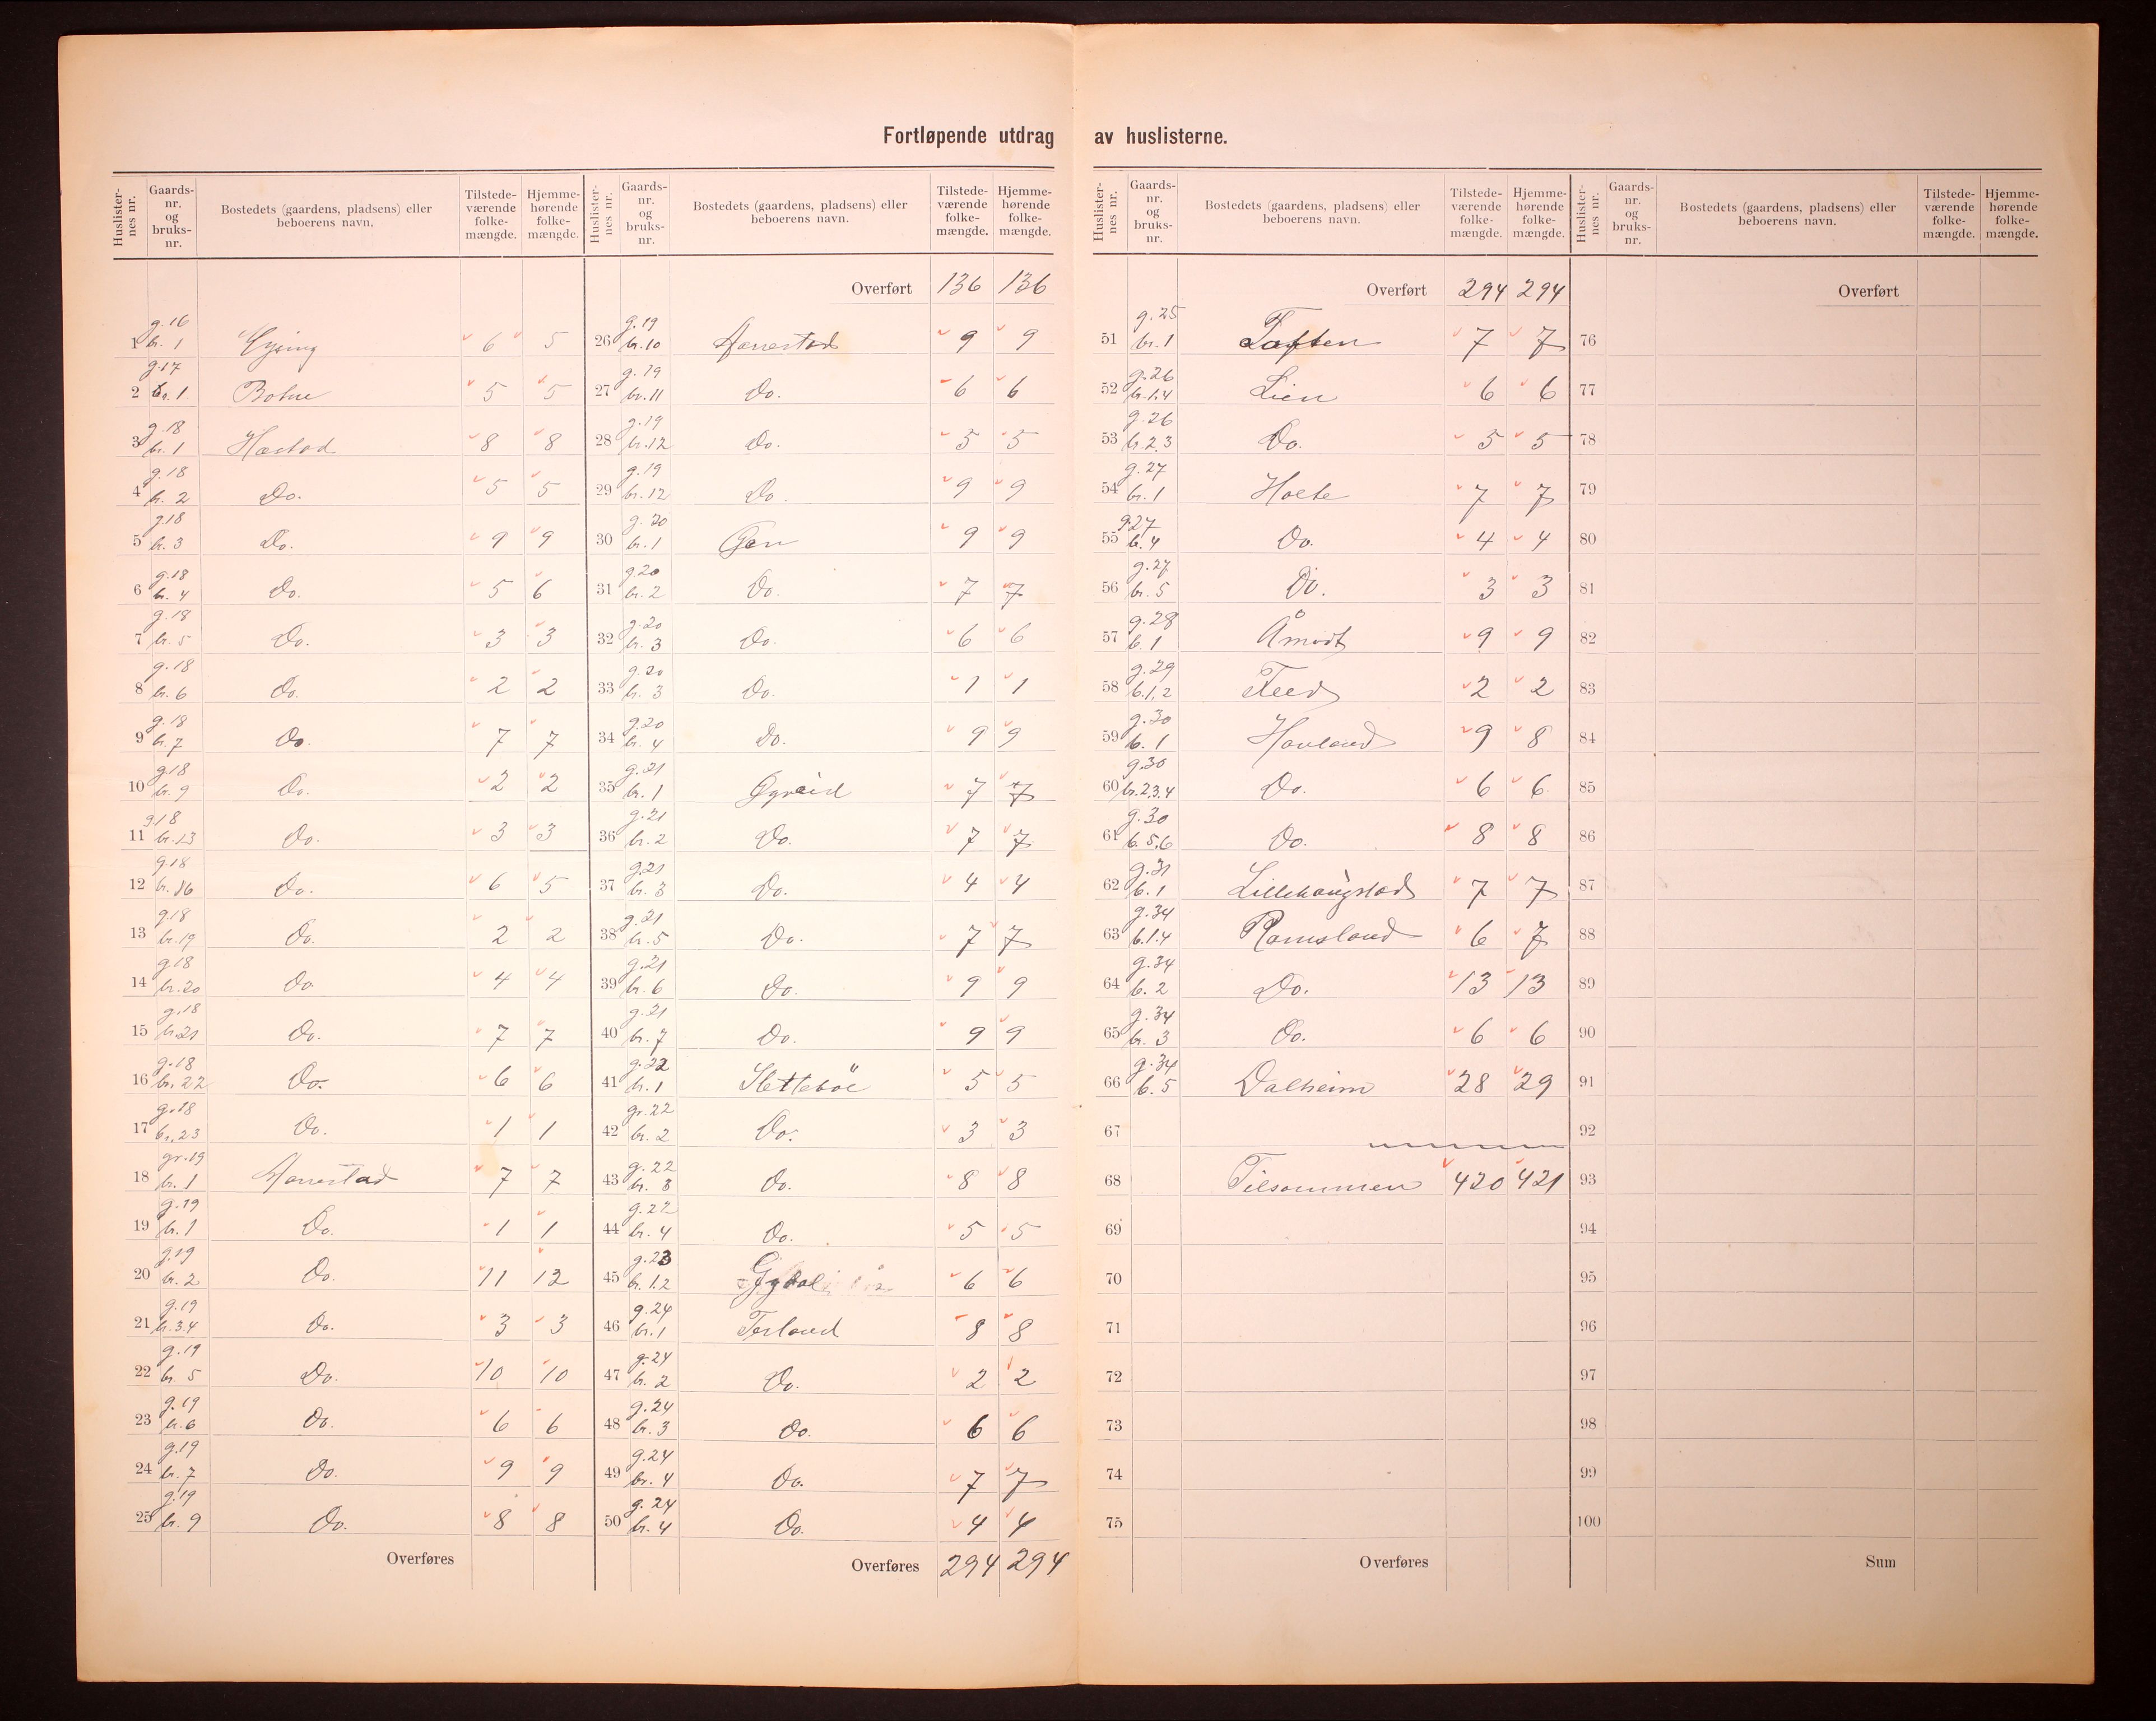 Fortløpende utdrag av huslisterne.
Huslisternes nr. Gaards-nr. og bruks-nr. Bostedets (gaardens, pladsens) eller beboerens navn. Tilstedeværende folkemængde. Hjemmehørende folkemængde.
1 g.16 br. 1 6 5
2 g.17 br. 1. 5 5
3 g.18 br. 1 Hæstad 8 8
4 g.18 br. 2 Do. 5 5
5 g.18 br. 3 Do. 9 9
6 g.18 br. 4 Do. 5 6
7 g.18 br. 5 Do. 3 3
8 g.18 br. 6 Do. 2 2
9 g.18 br. 7 Do. 7 7
10 g.18 br. 9 Do. 2 2
11 g.18 br. 13 Do. 3 3
12 g.18 br. 16 Do. 6 5
13 g.18 br. 19 Do. 2 2
14 g.18 br. 20 Do 4 4
15 g.18 br. 21 Do. 7 7
16 g.18 br. 22 Do. 6 6
17 g.18 br. 23 Do. 1 1
18 gr.19 br. 1 Mærestad 7 7
19 g.19 br. 1 Do. 1 1
20 g.19 br. 2 Do. 11 12
21 g.19 br. 3.4 Do. 3 3
22 g.19 br 5 Do. 10 10
23 g.19 br. 6 Do. 6 6
24 g.19 br. 7 Do. 9 9
25 g.19 br. 9 Do. 8 8
Overføres
Huslisternes nr. Gaards-nr. og bruks-nr. Bostedets (gaardens, pladsens) eller beboerens navn. Tilstedeværende folkemængde. Hjemmehørende folkemængde.
Overført 136 136
26 g.19 br. 10 Mærestad 9 9
27 g.19 br. 11 Do. 6 6
28 g.19 br. 12 Do. 5 5
29 g.19 br. 12 Do. 9 9
30 g.20 br. 1 9 9
31 g.20 br. 2 Do. 7 7
32 g.20 br. 3 Do. 6 6
33 g.20 br. 3 Do. 1 1
34 g.20 br. 4 Do. 9 9
35 g.21 br. 1 Øgreid 7 7
36 g.21 br. 2 Do. 7 7
37 g.21 br. 3 Do. 4 4
38 g.21 br. 5 Do. 7 7
39 g.21 br. 6 Do. 9 9
40 g.21 br. 7 Do. 9 9
41 g.22 br. 1 Sletteböe 5 5
42 gr.22 br. 2 Do. 3 3
43 g.22 br. 3 Do. 8 8
44 g.22 br. 4 Do. 5 5
45 g.23 br. 1.2 6 6
46 g.24 br. 1 Terland 8 8
47 g.24 br. 2 Do. 2 2
48 g.24 br. 3 Do. 6 6
49 g.24 br. 4 Do. 7 7
50 g.24 br. 4 Do. 4 4
Overføres 294 294
Huslisternes nr. Gaards-nr. og bruks-nr. Bostedets (gaardens, pladsens) eller beboerens navn. Tilstedeværende folkemængde. Hjemmehørende folkemængde.
Overført 294 294
51 g.25 br. 1 Tæften 7 7
52 g.26 br. 1.4 Lien 6 6
53 g.26 br. 2.3 Do. 5 5
54 g.27 br. 1 Holte 7 7
55 g.27 br. 4 Do. 4 4
56 g.27 br. 5 Do. 3 3
57 g.28 b. 1 Åmodt 9 9
58 g.29 b. 1,2 2 2
59 g.30 b. 1 Havland 9 8
60 g.30 br. 2.3.4 Do. 6 6
61 g.30 b. 5.6 Do. 8 8
62 g.31 b. 1 Lillehaugstad 7 7
63 g.34 b. 1.4 Ramsland 6 7
64 g.34 b. 2 Do. 13 13
65 g.34 br. 3 Do. 6 6
66 g.34 b. 5 Dalheim 28 29
67
68 Tilsammen 420 421
69
70
71
72
73
74
75
Overføres
Huslisternes nr. Gaards-nr. og bruks-nr. Bostedets (gaardens, pladsens) eller beboerens navn. Tilstedeværende folkemængde. Hjemmehørende folkemængde.
Overført
76
77
78
79
80
81
82
83
84
85
86
87
88
89
90
91
92
93
94
95
96
97
98
99
100
Sum